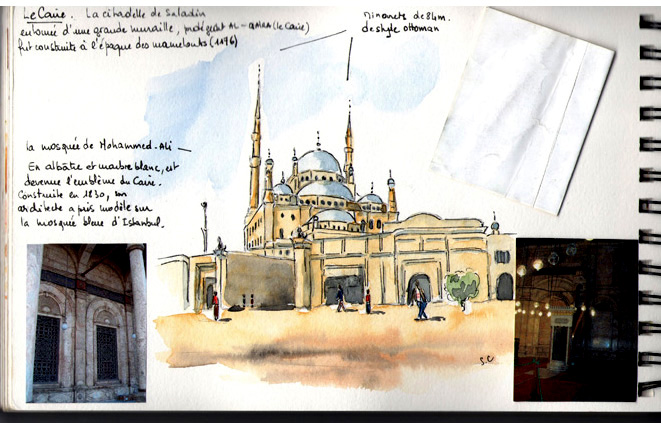 Le Caire. La citadelle de Saladin
entourée d'une grande muraille, protégeant AL-QAHRA (le Caire)
fut construite à l'époque des mamelouks (1176)
Minarets de 84m.
de style ottoman
la mosquée de Mohammed-Ali
En albâtre et marbre blanc, est
devenue l'emblème du Caire.
Construite en 1830, son
architecte a pris modèle sur
la mosquée bleue d'Istanbul.
S.C